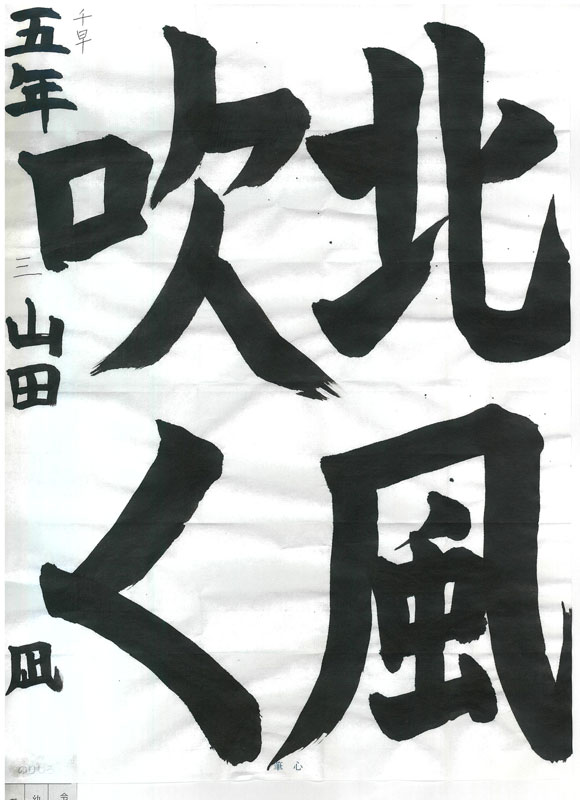 北風
吹く
千早
五年
三
山田
凪